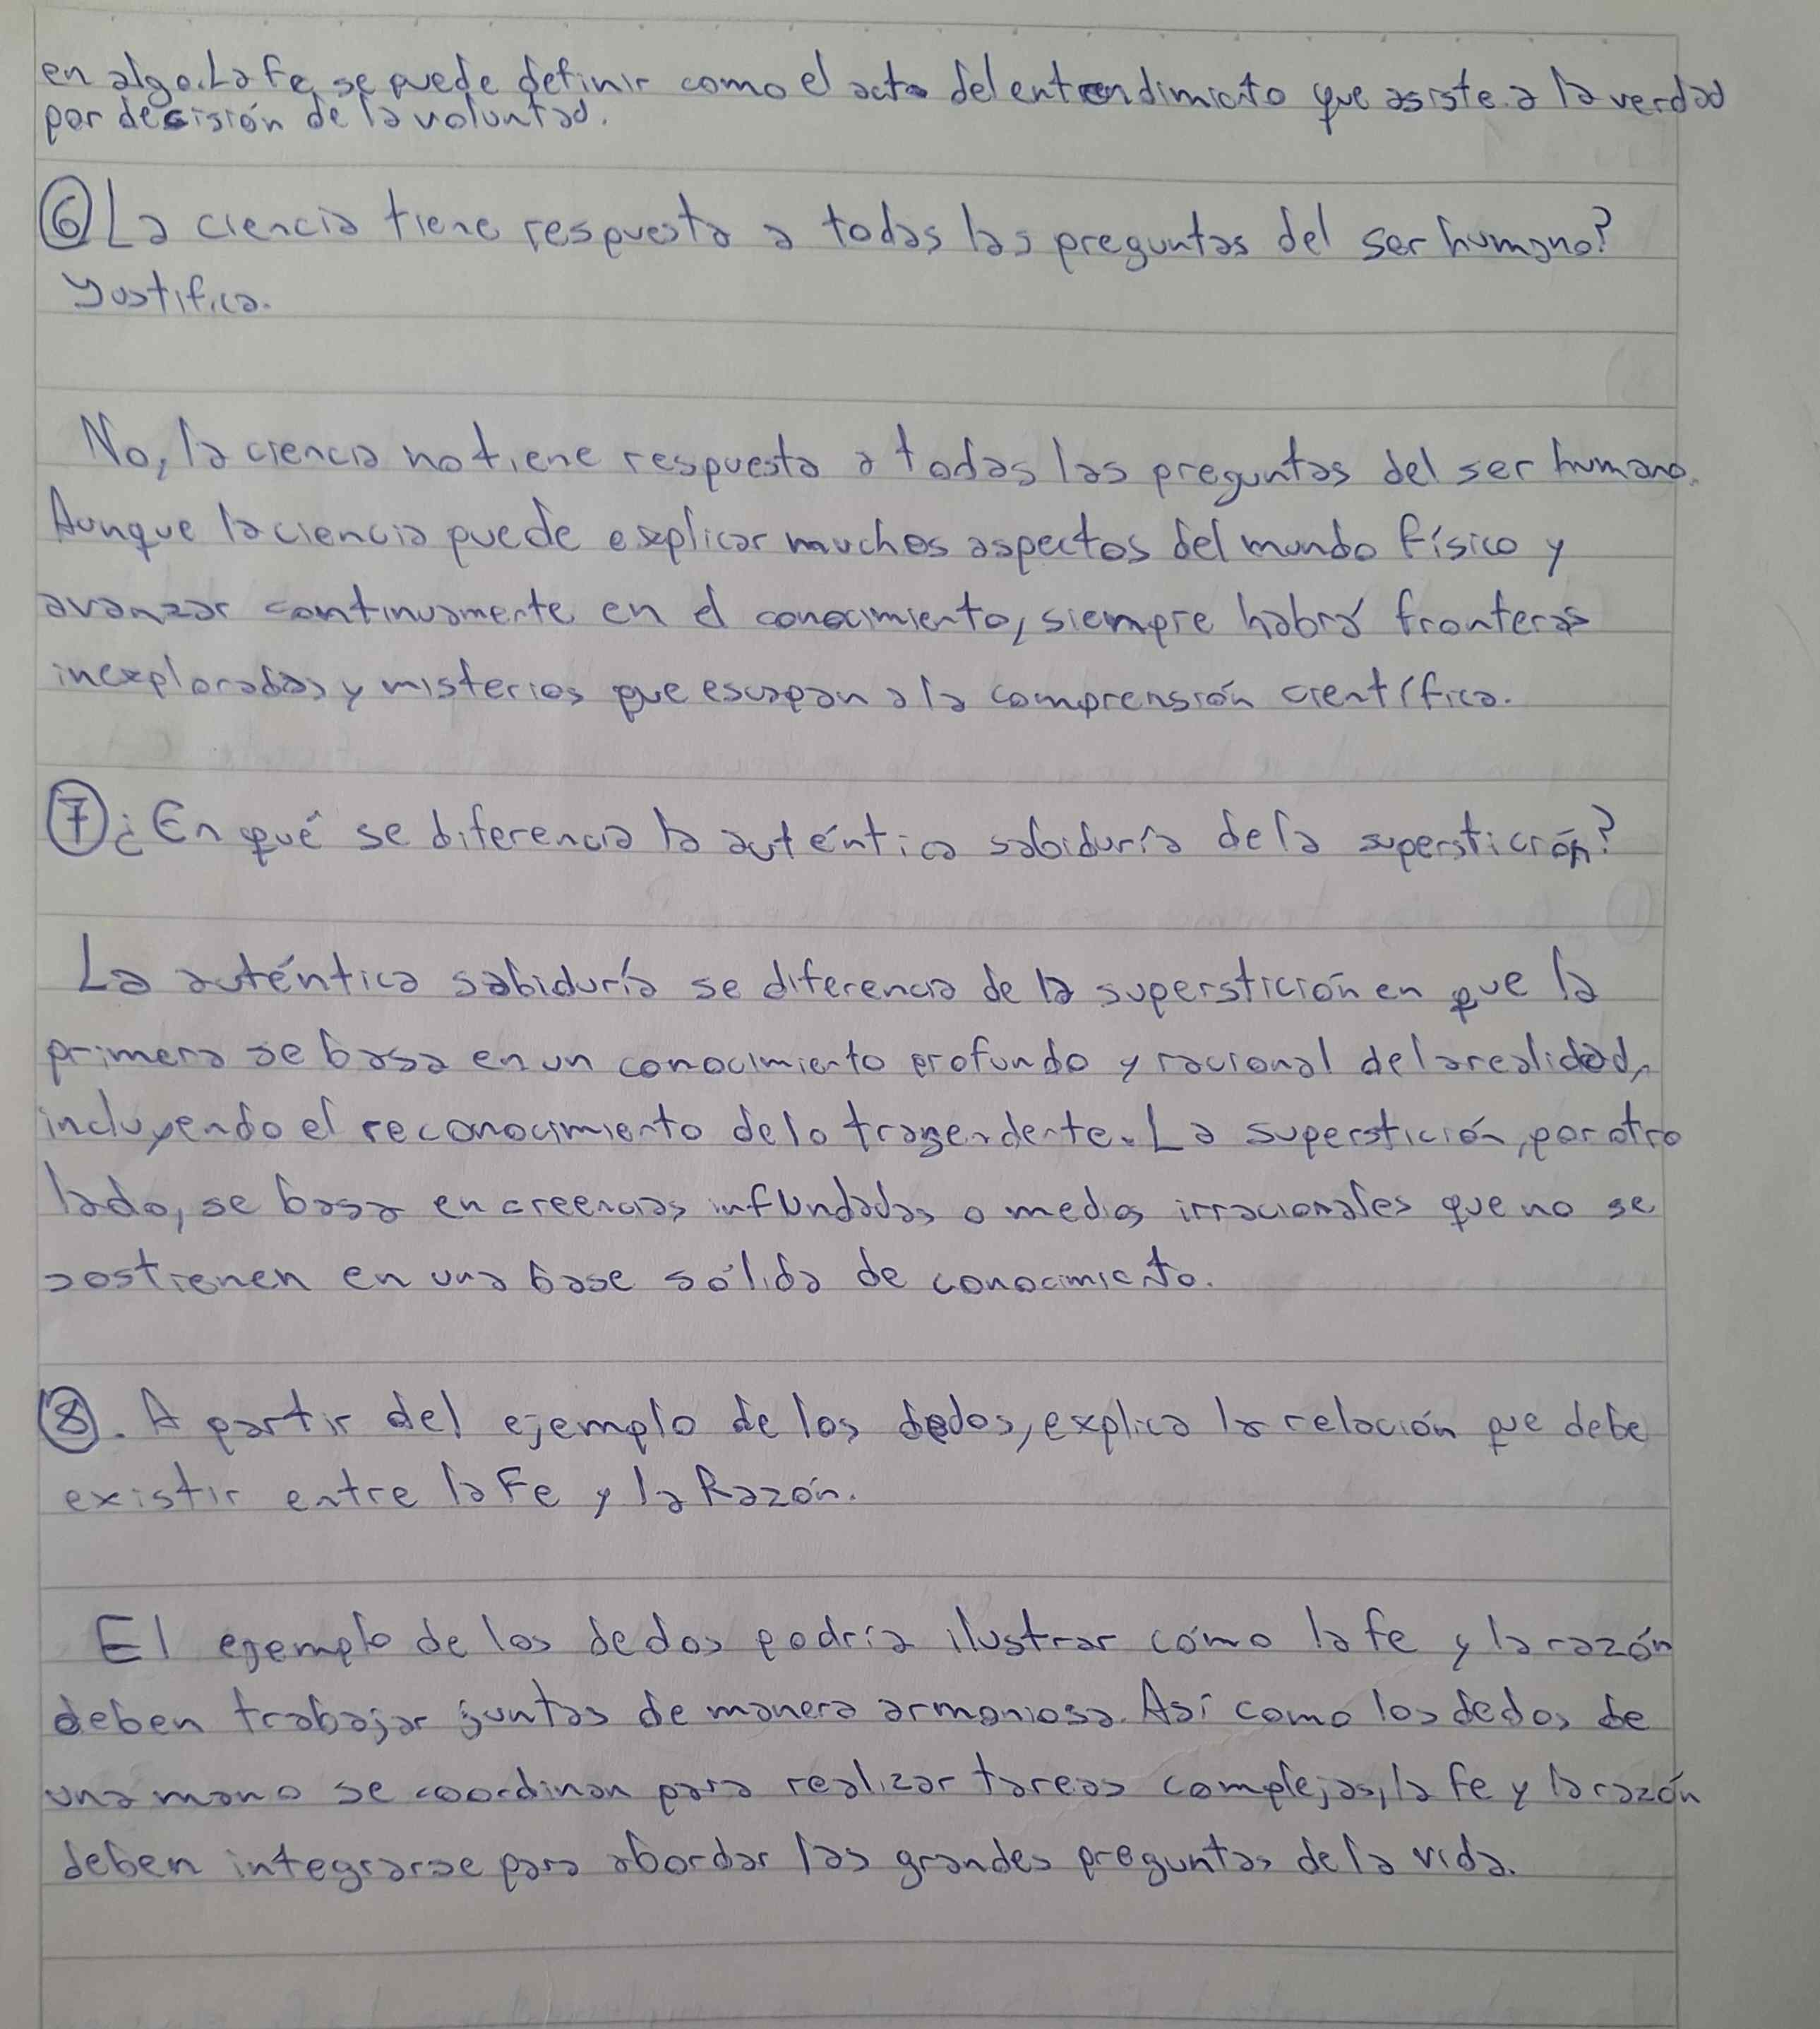 en algo. La fe, se puede definir como el acto del entendimiento que asiste a la verdad
por decisión de la voluntad.
⑥ La ciencia tiene respuesta a todas las preguntas del ser humano?
Justifica.
No, la ciencia no tiene respuesta a todas las preguntas del ser humano.
Aunque la ciencia puede explicar muchos aspectos del mundo físico y
avanzar continuamente en el conocimiento, siempre habrá fronteras
inexploradas y misterios que escapan a la comprensión científica.
⑦ ¿En qué se diferencia la auténtica sabiduría de la superstición?
La auténtica sabiduría se diferencia de la superstición en que la
primera se basa en un conocimiento profundo y racional de la realidad,
incluyendo el reconocimiento de lo trasendente. La superstición, por otro
lado, se basa en creencias infundadas o medios irracionales que no se
sostienen en una base sólida de conocimiento.
⑧. A partir del ejemplo de los dedos, explica la relación que debe
existir entre la Fe y la Razón.
El ejemplo de los dedos podría ilustrar cómo la fe y la razón
deben trabajar juntas de manera armoniosa. Así como los dedos de
una mano se coordinan para realizar tareas complejas, la fe y la razón
deben integrarse para abordar las grandes preguntas de la vida.